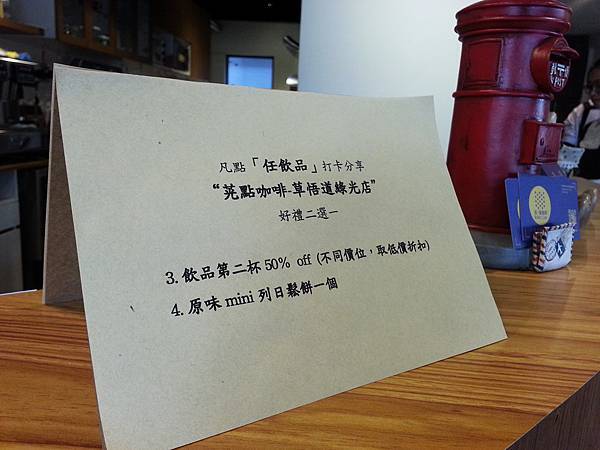 凡點「任飲品」打卡分享
“莞點咖啡-草悟道綠光店”
好禮二選一
3. 飲品第二杯 50% off (不同價位，取低價折扣)
4. 原味 mini 列日鬆餅一個